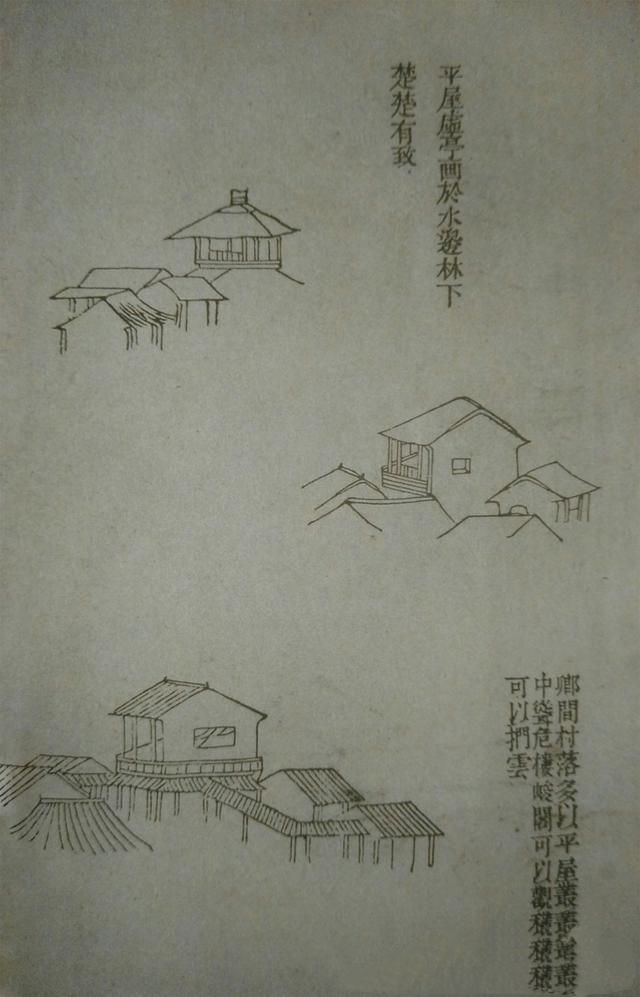 平屋虛亭画於水邊林下
楚楚有致
鄉間村落多以平屋叢叢叢叢
中聳危樓峻閣可以觀穫穫穫
可以捫雲